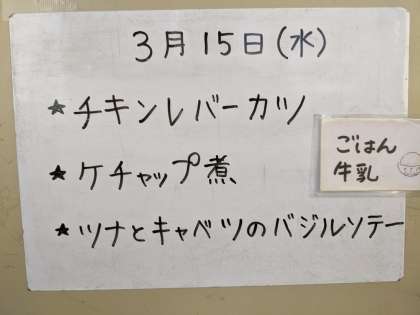 3月15日(水)
★チキンレバーカツ
★ケチャップ煮
★ツナとキャベツのバジルソテー
ごはん
牛乳